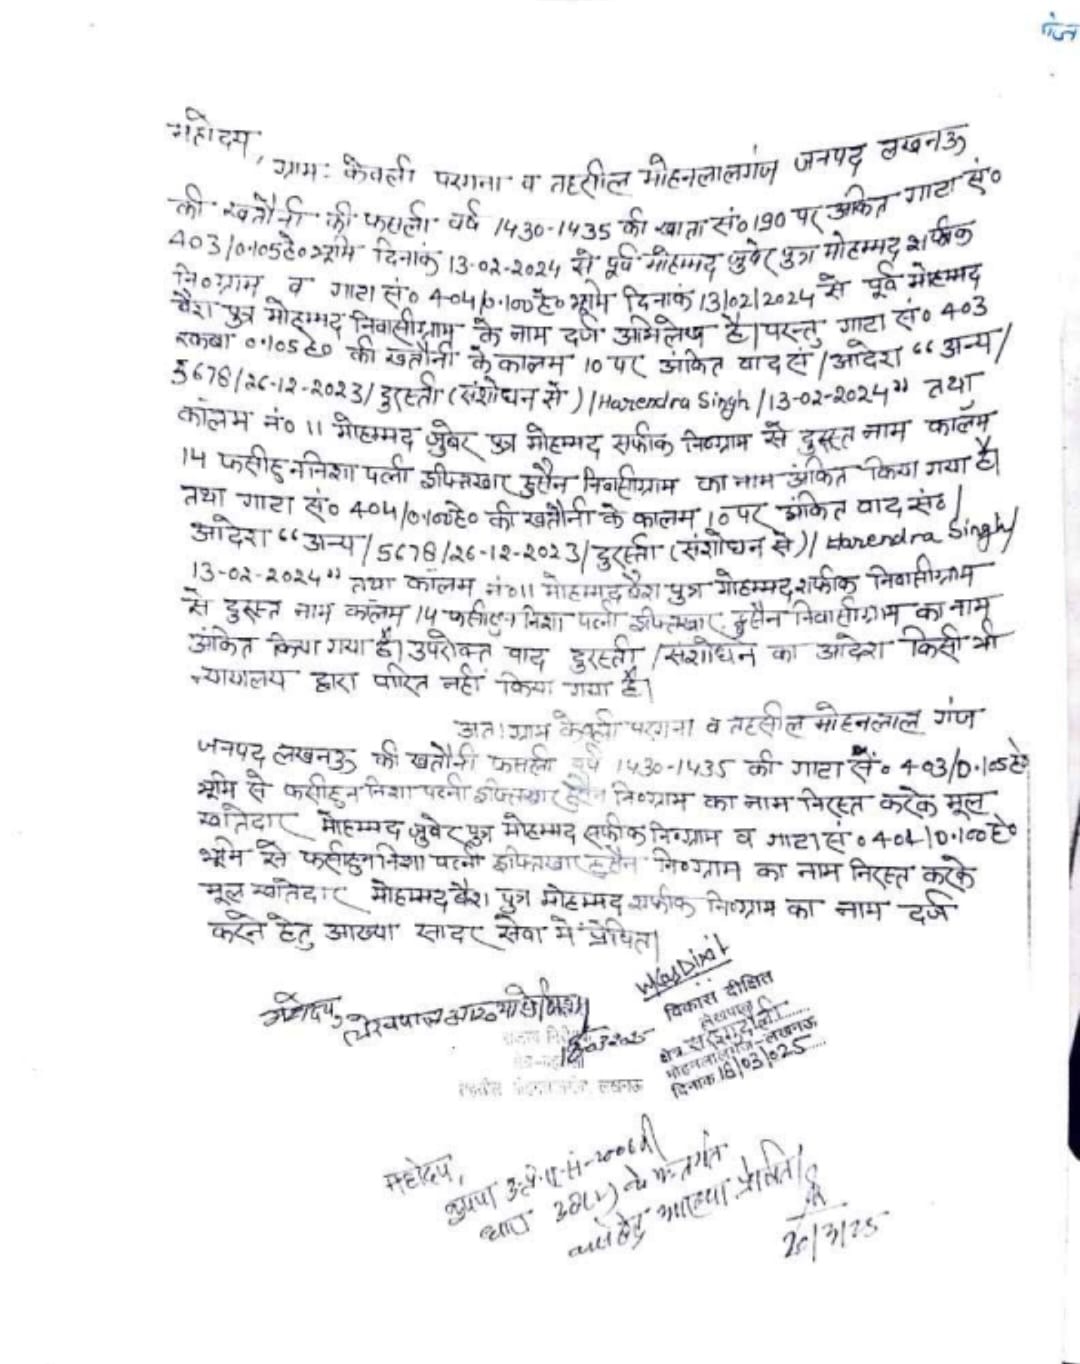 महोदय,
ग्राम: केवली परगना व तहसील मोहनलालगंज जनपद लखनऊ
की खतौनी की फसली वर्ष 1430-1435 की खाता सं० 190 पर अंकित गाटा सं०
403/0.105हे० भूमि दिनांक 13-02-2024 से पूर्व मोहम्मद जुबेर पुत्र मोहम्मद शफीक
नि०ग्राम व गाटा सं० 404/0.100हे० भूमि दिनांक 13/02/2024 से पूर्व मोहम्मद
पुत्र मोहम्मद निवासीग्राम के नाम दर्ज अभिलेख है। परन्तु गाटा सं० 403
रकबा 0.105हे० की खतौनी के कालम 10 पर अंकित वाद सं/आदेश "अन्य/
5678/26-12-2023/दुरस्ती (संशोधन से)/Harendra Singh/13-02-2024" तथा
कॉलम नं० 11 मोहम्मद जुबेर पुत्र मोहम्मद सफीक नि०ग्राम से दुरुस्त नाम कॉलम
14 फसीहुननिशा पत्नी इफ्तखार हुसैन निवासीग्राम का नाम अंकित किया गया है।
तथा गाटा सं० 404/0.100हे० की खतौनी के कालम 10 पर अंकित वाद सं०/
आदेश "अन्य/5678/26-12-2023/दुरस्ती (संशोधन से)/Harendra Singh/
13-02-2024" तथा कॉलम नं० 11 मोहम्मद पुत्र मोहम्मद शफीक निवासीग्राम
से दुरुस्त नाम कॉलम 14 फसीहुननिशा पत्नी इफ्तखार हुसैन निवासीग्राम का नाम
अंकित किया गया है। उपरोक्त वाद दुरस्ती/संशोधन का आदेश किसी भी
न्यायालय द्वारा पारित नहीं किया गया है।
अतः ग्राम केवली परगना व तहसील मोहनलाल गंज
जनपद लखनऊ की खतौनी फसली वर्ष 1430-1435 की गाटा सं० 403/0.105हे०
भूमि से फसीहुननिशा पत्नी इफ्तखार हुसैन नि०ग्राम का नाम निरस्त करके मूल
खातेदार मोहम्मद जुबेर पुत्र मोहम्मद सफीक नि०ग्राम व गाटा सं० 404/0.100हे०
भूमि से फसीहुननिशा पत्नी इफ्तखार हुसैन नि०ग्राम का नाम निरस्त करके
मूल खातेदार मोहम्मद पुत्र मोहम्मद शफीक नि०ग्राम का नाम दर्ज
करने हेतु आख्या सादर सेवा में प्रेषित।
Vikas Dixit
विकास दीक्षित
लेखपाल
क्षेत्र
मोहनलालगंज-लखनऊ
दिनांक 18/03/025
महोदय,
लेखपाल
18-03-2025
लखनऊ
महोदय,
कृपया 2006 की
धारा 38(2) के अन्तर्गत
हेतु आख्या प्रेषित।
20/3/25